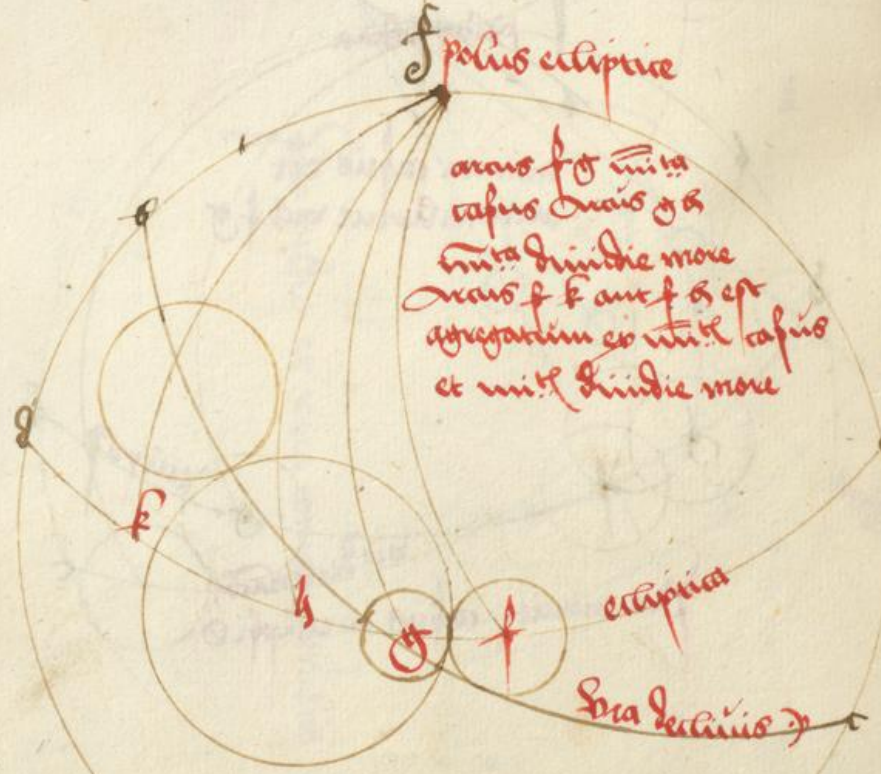 f polus ecliptice
arcus f g mīta
casus Arcus g h
mīta dimidie more
Arcus f k aut f h est
agregatum ex mīt casus
et mīt dimidie more
b
d
k
h
g
f
ecliptica
via declivis
c